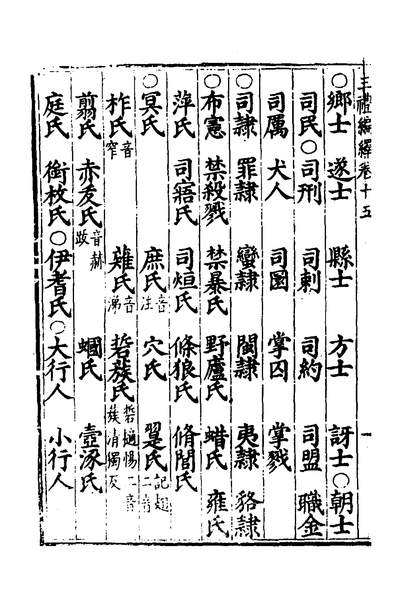 三禮編繹卷十五　一
○鄉士　遂士　縣士　方士　訝士○朝士
司民○司刑　司刺　司約　司盟　職金
司厲　犬人　司圜　掌囚　掌戮
○司隸　罪隸　蠻隸　閩隸　夷隸　貉隸
○布憲　禁殺戮　禁暴氏　野廬氏　蜡氏　雍氏
萍氏　司寤氏　司烜氏　條狼氏　脩閭氏
○冥氏　庶氏音注　穴氏　翨氏記翅二音
柞氏音窄　薙氏音涕　硩蔟氏硩適惕二音蔟清獨反
翦氏　赤犮氏音赫跋　蟈氏　壺涿氏
庭氏　銜枚氏○伊耆氏○大行人　小行人